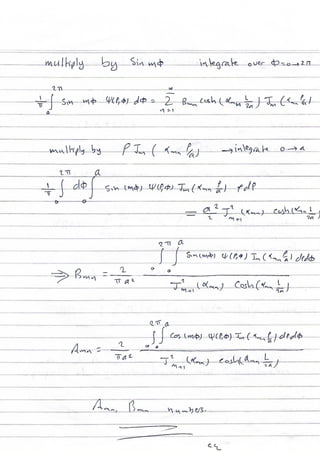 multiply by Sin mΦ integrate over Φ=0→2π
1/π ∫₀^2π Sin mΦ Ψ(ρ,Φ) dΦ = Σ_{n=1}^∞ Bmn Cosh(αmn L/2a) Jm(αmn ρ/a)
multiply by ρ Jm(αmn ρ/a) → integrate 0→a
1/π ∫₀^2π dΦ ∫₀^a Sin(mΦ) Ψ(ρ,Φ) Jm(αmn ρ/a) ρdρ
= a²/2 J²m+1(αmn) cosh(αmn L/2a)
⇒ Bmn = 2/πa² ∫₀^2π ∫₀^a Sin(mΦ) Ψ(ρ,Φ) Jm(αmn ρ/a) dρdΦ / J²m+1(αmn) Cosh(αmn L/2a)
Amn = 2/πa² ∫₀^2π ∫₀^a cos(mΦ) Ψ(ρ,Φ) Jm(αmn ρ/a) dρdΦ / J²m+1(αmn) cosh(αmn L/2a)
Amn, Bmn numbers.